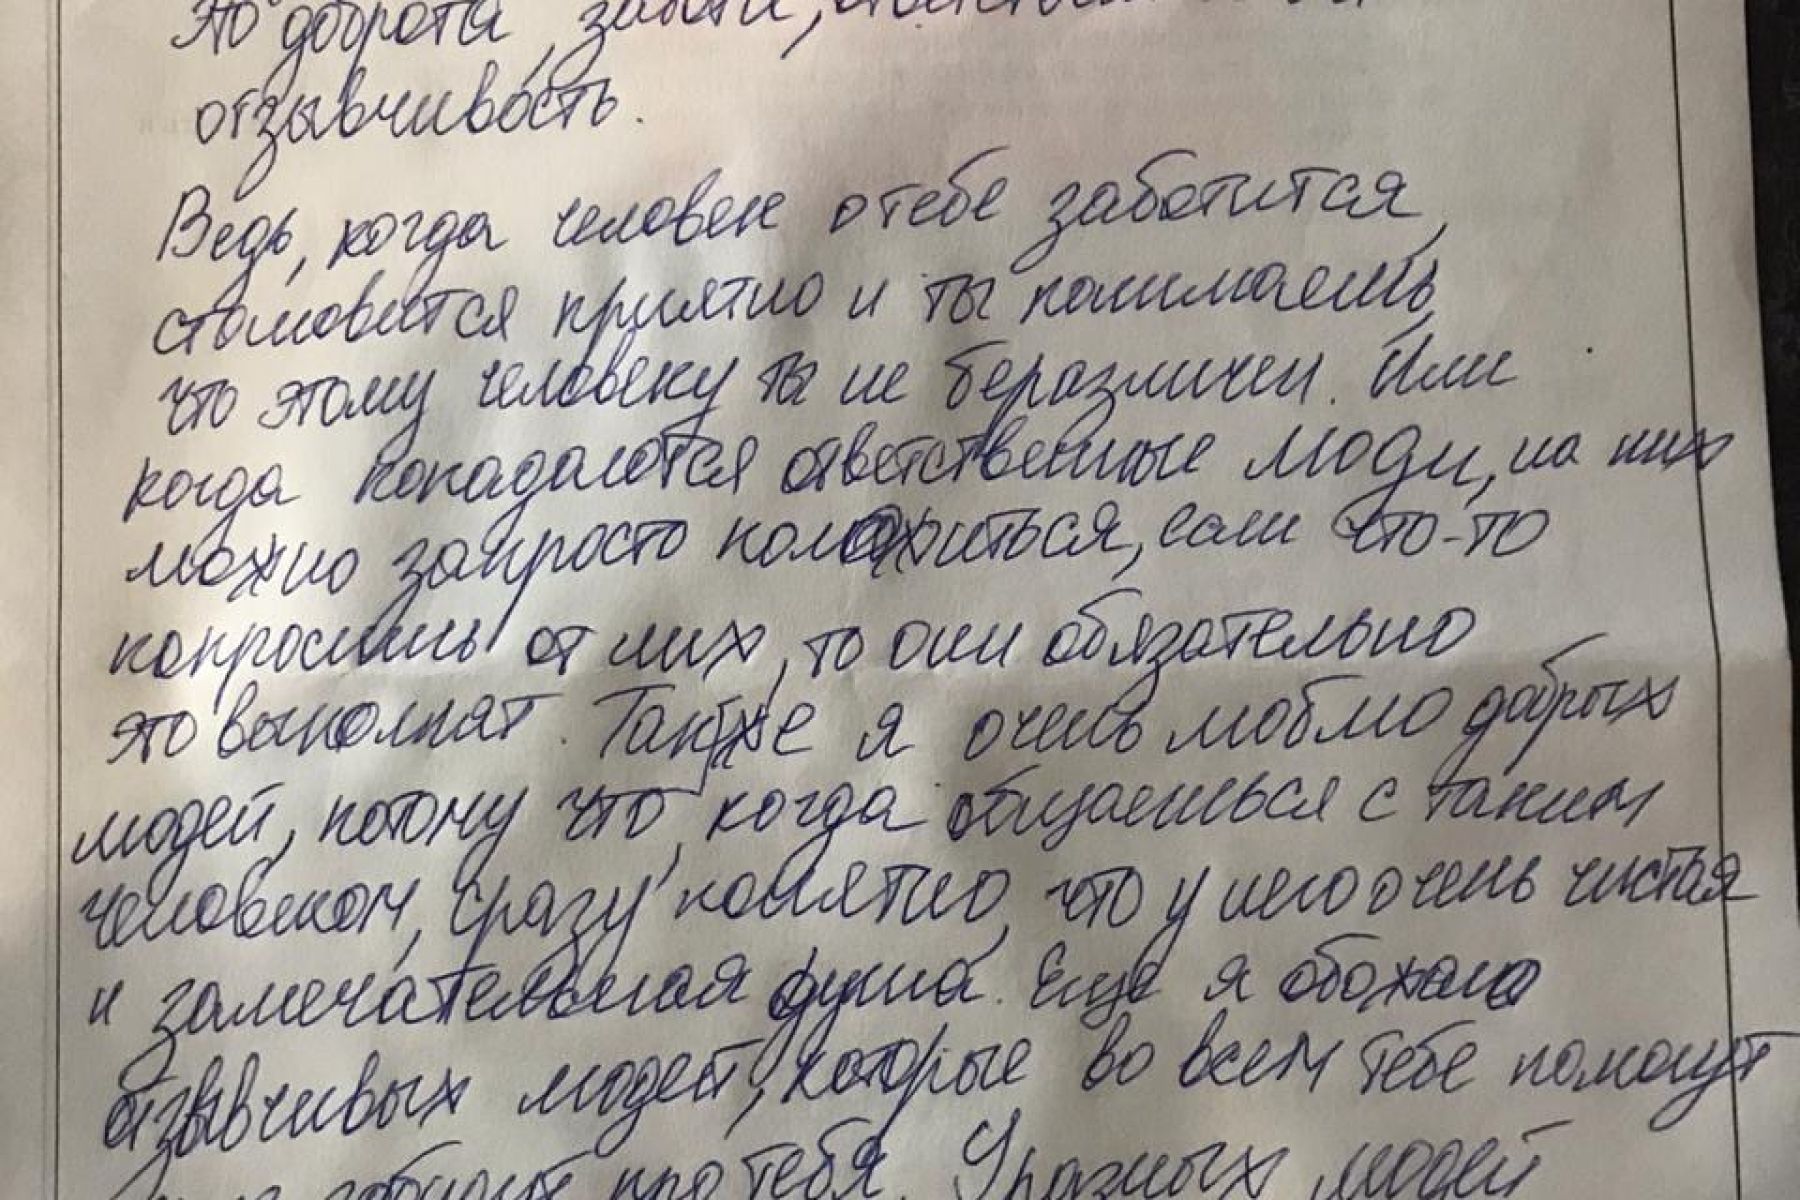 это доброта, забота,
отзывчивость.
Ведь, когда человек о тебе заботится,
становится приятно и ты понимаешь,
что этому человеку ты не беразличен. Или
когда попадаются ответственные люди, на них
можно запросто положиться, если что-то
попросишь от них, то они обязательно
это выполнят. Также я очень люблю добрых
людей, потому что, когда общаешься с таким
человеком, сразу понятно, что у него очень чистая
и замечательная душа. Еще я обожаю
отзывчивых людей, которые во всем тебе помогут
про тебя. У разных людей